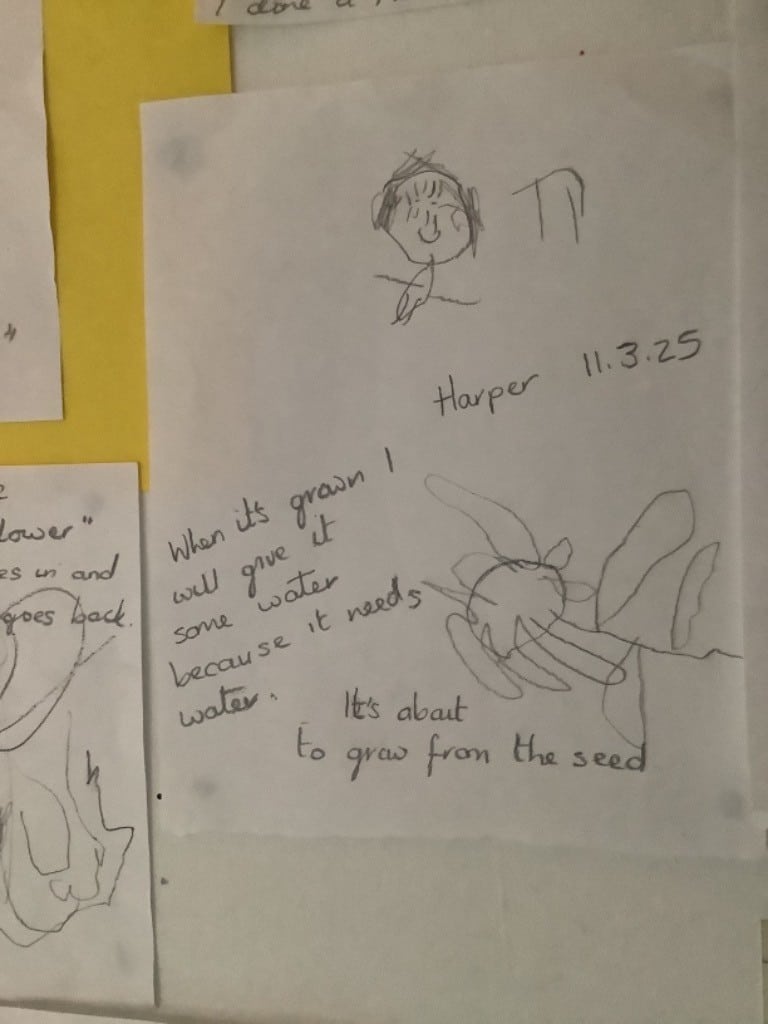 I done a
Harper 11.3.25
When it's grown I
will give it
some water
because it needs
water.
It's about
to grow from the seed
lower"
es in and
goes back.